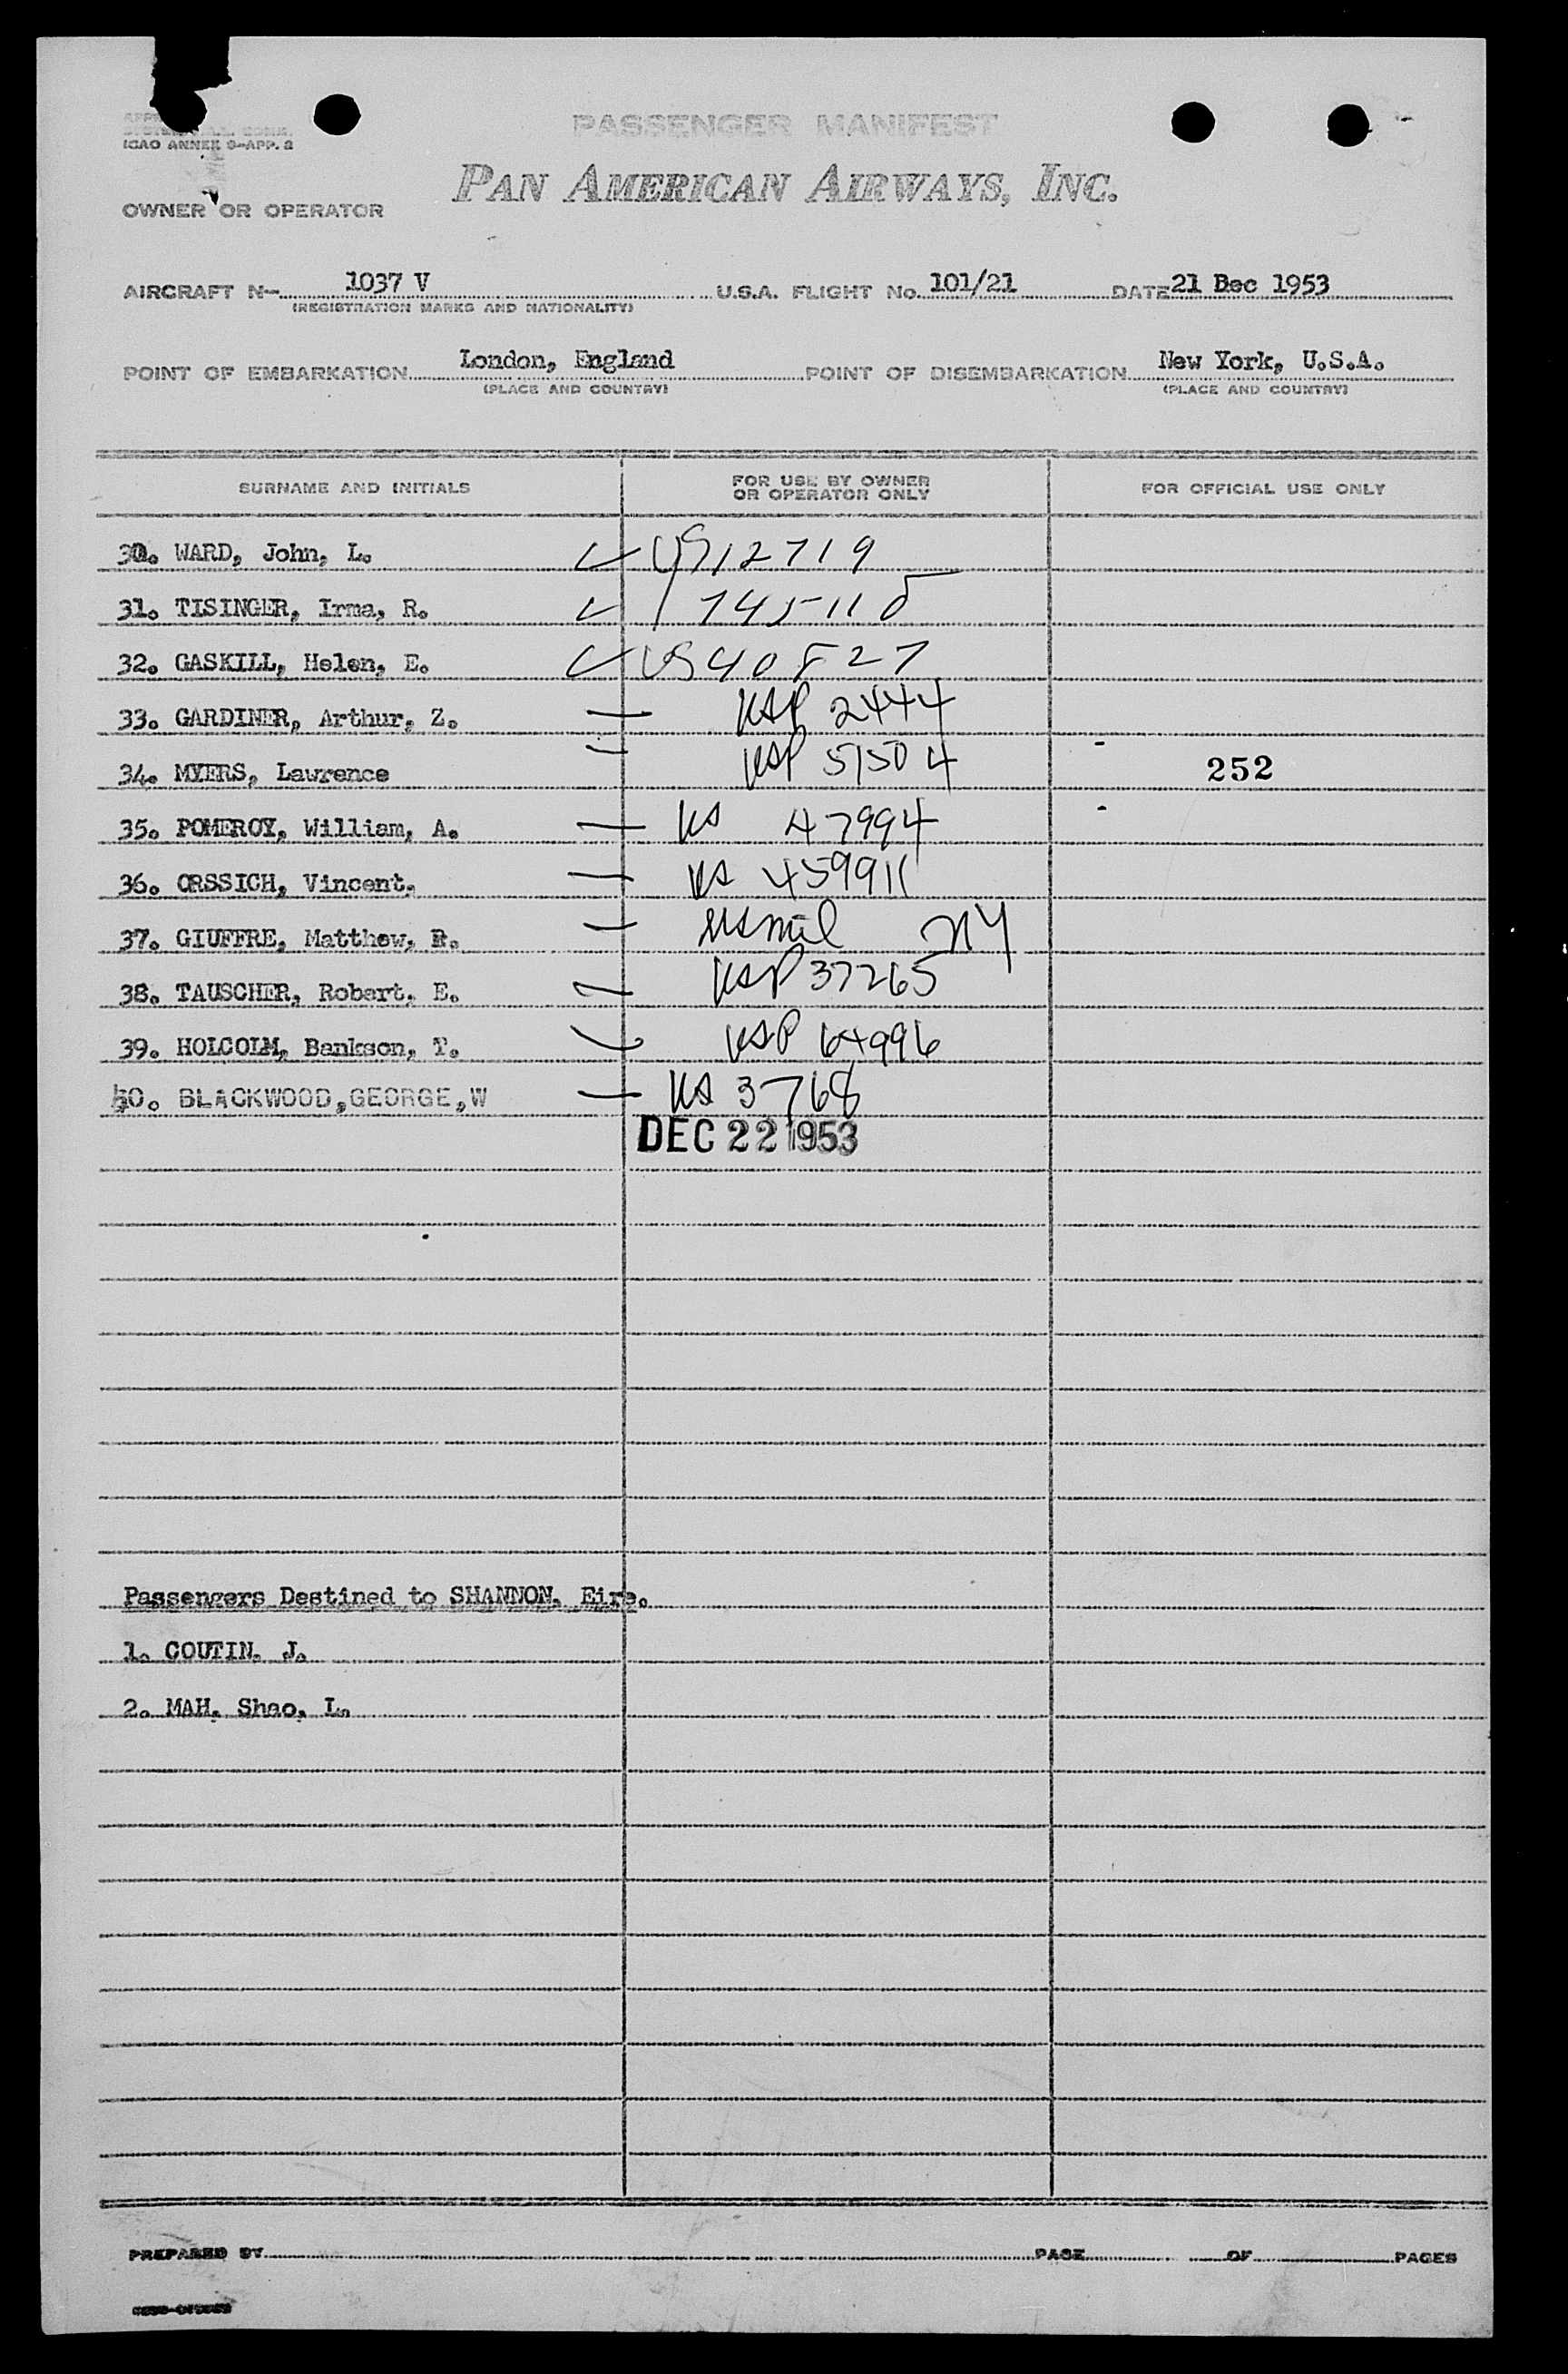 ICAO ANNEX 9-APP. 2
PASSENGER MANIFEST
PAN AMERICAN AIRWAYS, INC.
OWNER OR OPERATOR
AIRCRAFT N- 1037 V U.S.A. FLIGHT No. 101/21 DATE 21 Dec 1953
(REGISTRATION MARKS AND NATIONALITY)
POINT OF EMBARKATION London, England POINT OF DISEMBARKATION New York, U.S.A.
(PLACE AND COUNTRY) (PLACE AND COUNTRY)
SURNAME AND INITIALS FOR USE BY OWNER OR OPERATOR ONLY FOR OFFICIAL USE ONLY
30. WARD, John, L. US 12719
31. TISINGER, Irma, R. 745110
32. GASKILL, Helen, E. US 40827
33. GARDINER, Arthur, Z. USP 2444
34. MYERS, Lawrence USP 51504 252
35. POMEROY, William, A. US 47994
36. ORSSICH, Vincent. US 459911
37. GIUFFRE, Matthew, R. US mil NY
38. TAUSCHER, Robert, E. USP 37265
39. HOLCOLM, Bankson, T. USP 64996
40. BLACKWOOD,GEORGE,W US 3768
DEC 22 1953
Passengers Destined to SHANNON, Eire.
1. COUTIN, J.
2. MAH, Shao, L.
PREPARED BY PAGE OF PAGES